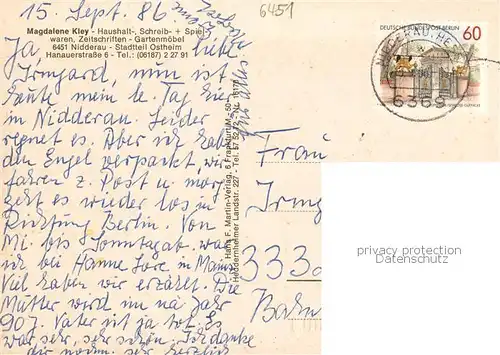 15. Sept. 86
6451
Magdalene Kley - Haushalt-, Schreib- + Spiel-
waren, Zeitschriften - Gartenmöbel
6451 Nidderau - Stadtteil Ostheim
Hanauerstraße 6 - Tel.: (06187) 2 27 91
Ja, liebe
Irmgard, nun ist
heute mein le. Tag hier
in Nidderau. Leider
regnet es. Aber ich habe
den Engel verpackt, wir
fahren z. Post u. morg.
geht es wieder los in
Richtung Berlin. Von
Mi. bis Sonntagab. war
ich bei Hanne Lore in Mainz
Viel haben wir erzählt. Die
Mutter wird im na Jahr
90J. Vater ist ja tot. Es
war sehr, sehr schön. Ich danke
dir noch sehr herzlich
Hans F. Martin-Verlag, 6 Frankfurt/M.-50
Heddernheimer Landstr. 227 - Tel. 57 52 72
DEUTSCHE BUNDESPOST BERLIN
60
NIDDERAU, HE
6369
Frau
Irmg
333
privacy protection
Datenschutz